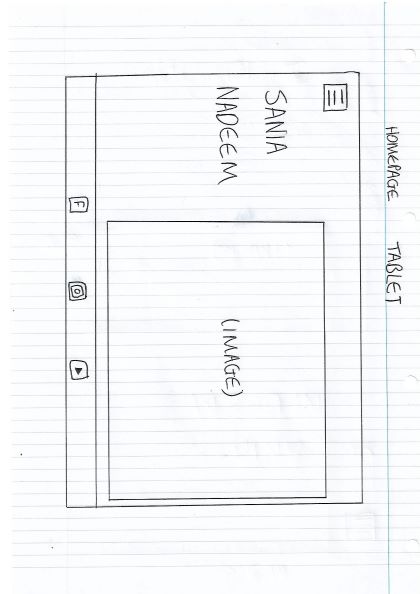 HOMEPAGE TABLET
SANIA
NADEEM
(IMAGE)
F